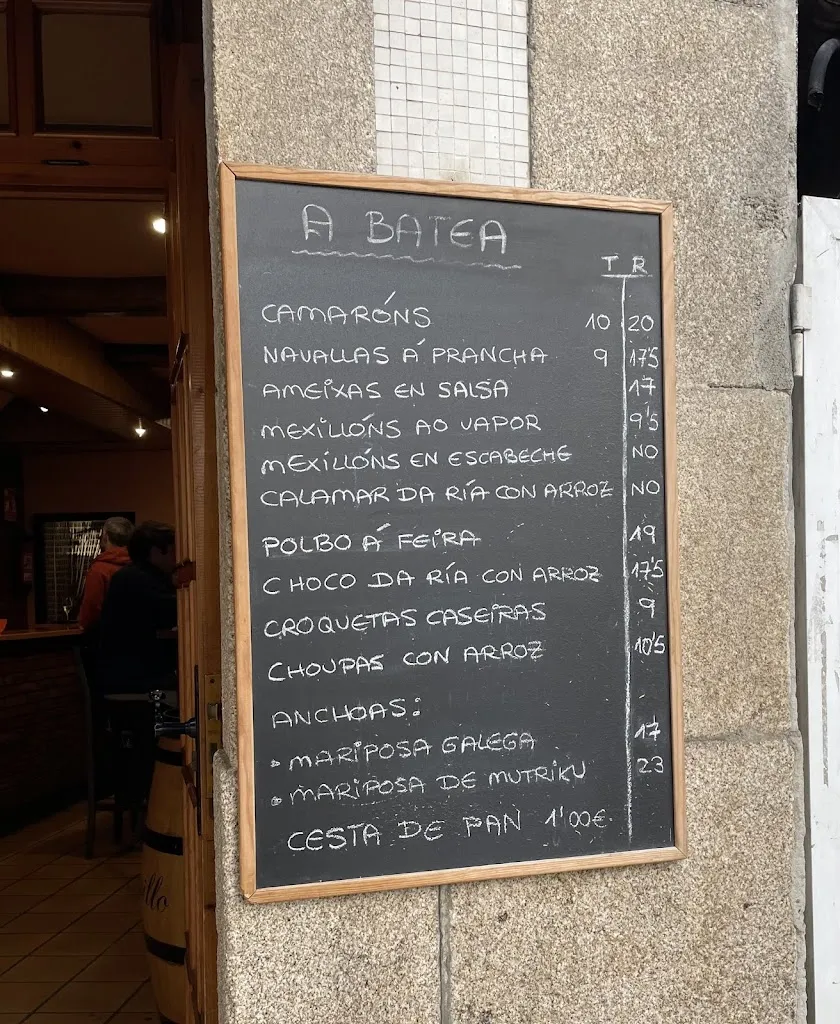 A BATEA
T R
CAMARÓNS 10 20
NAVALLAS Á PRANCHA 9 17'5
AMEIXAS EN SALSA 17
MEXILLÓNS AO VAPOR 9'5
MEXILLÓNS EN ESCABECHE NO
CALAMAR DA RÍA CON ARROZ NO
POLBO Á FEIRA 19
CHOCO DA RÍA CON ARROZ 17'5
CROQUETAS CASEIRAS 9
CHOUPAS CON ARROZ 10'5
ANCHOAS:
• MARIPOSA GALEGA 17
• MARIPOSA DE MUTRIKU 23
CESTA DE PAN 1'00€